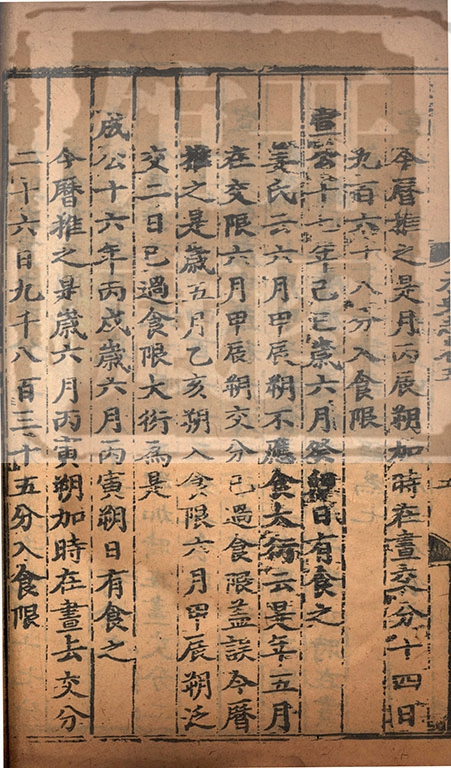 今曆推之是月丙辰朔加時在晝交分十四日
九百六十八分入食限
宣公十七年己巳歲六月癸卯日有食之
姜氏云六月甲辰朔不應食大衍云是年五月
在交限六月甲辰朔交分已過食限蓋誤今曆
推之是歲五月乙亥朔入食限六月甲辰朔泛
交二日已過食限大衍為是
成公十六年丙戌歲六月丙寅朔日有食之
今曆推之是歲六月丙寅朔加時在晝去交分
二十六日九千八百三十五分入食限